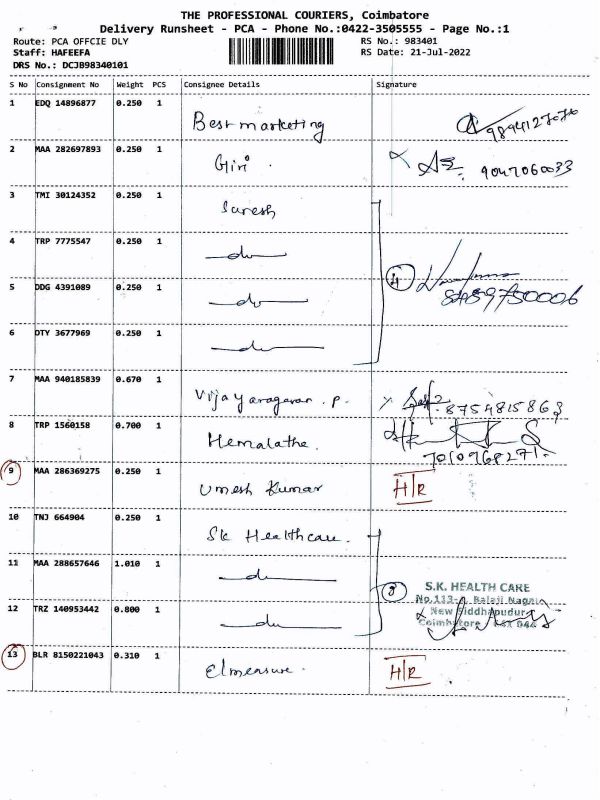 THE PROFESSIONAL COURIERS, Coimbatore
Delivery Runsheet - PCA - Phone No.:0422-3505555 - Page No.:1
Route: PCA OFFCIE DLY RS No.: 983401
Staff: HAFEEFA RS Date: 21-Jul-2022
DRS No.: DCJB98340101
S No Consignment No Weight PCS Consignee Details Signature
1 EDQ 14896877 0.250 1 Best marketing
2 MAA 282697893 0.250 1 Giri 9047060033
3 TMI 30124352 0.250 1 Suresh
4 TRP 7775547 0.250 1 do
5 DDG 4391089 0.250 1 do 4
6 DTY 3677969 0.250 1 do
7 MAA 940185839 0.670 1 Vijayaragavan . P. 8754815863
8 TRP 1560158 0.700 1 Hemalatha.
9 MAA 286369275 0.250 1 Umesh Kumar H/R
10 TNJ 664904 0.250 1 Sk Healthcare.
11 MAA 288657646 1.010 1 do 3 S.K. HEALTH CARE
No.113- Balaji Nagar
12 TRZ 140953442 0.800 1 do New Siddhapudur
Coimbatore 641 044
13 BLR 8150221043 0.310 1 Elmeasure. H/R